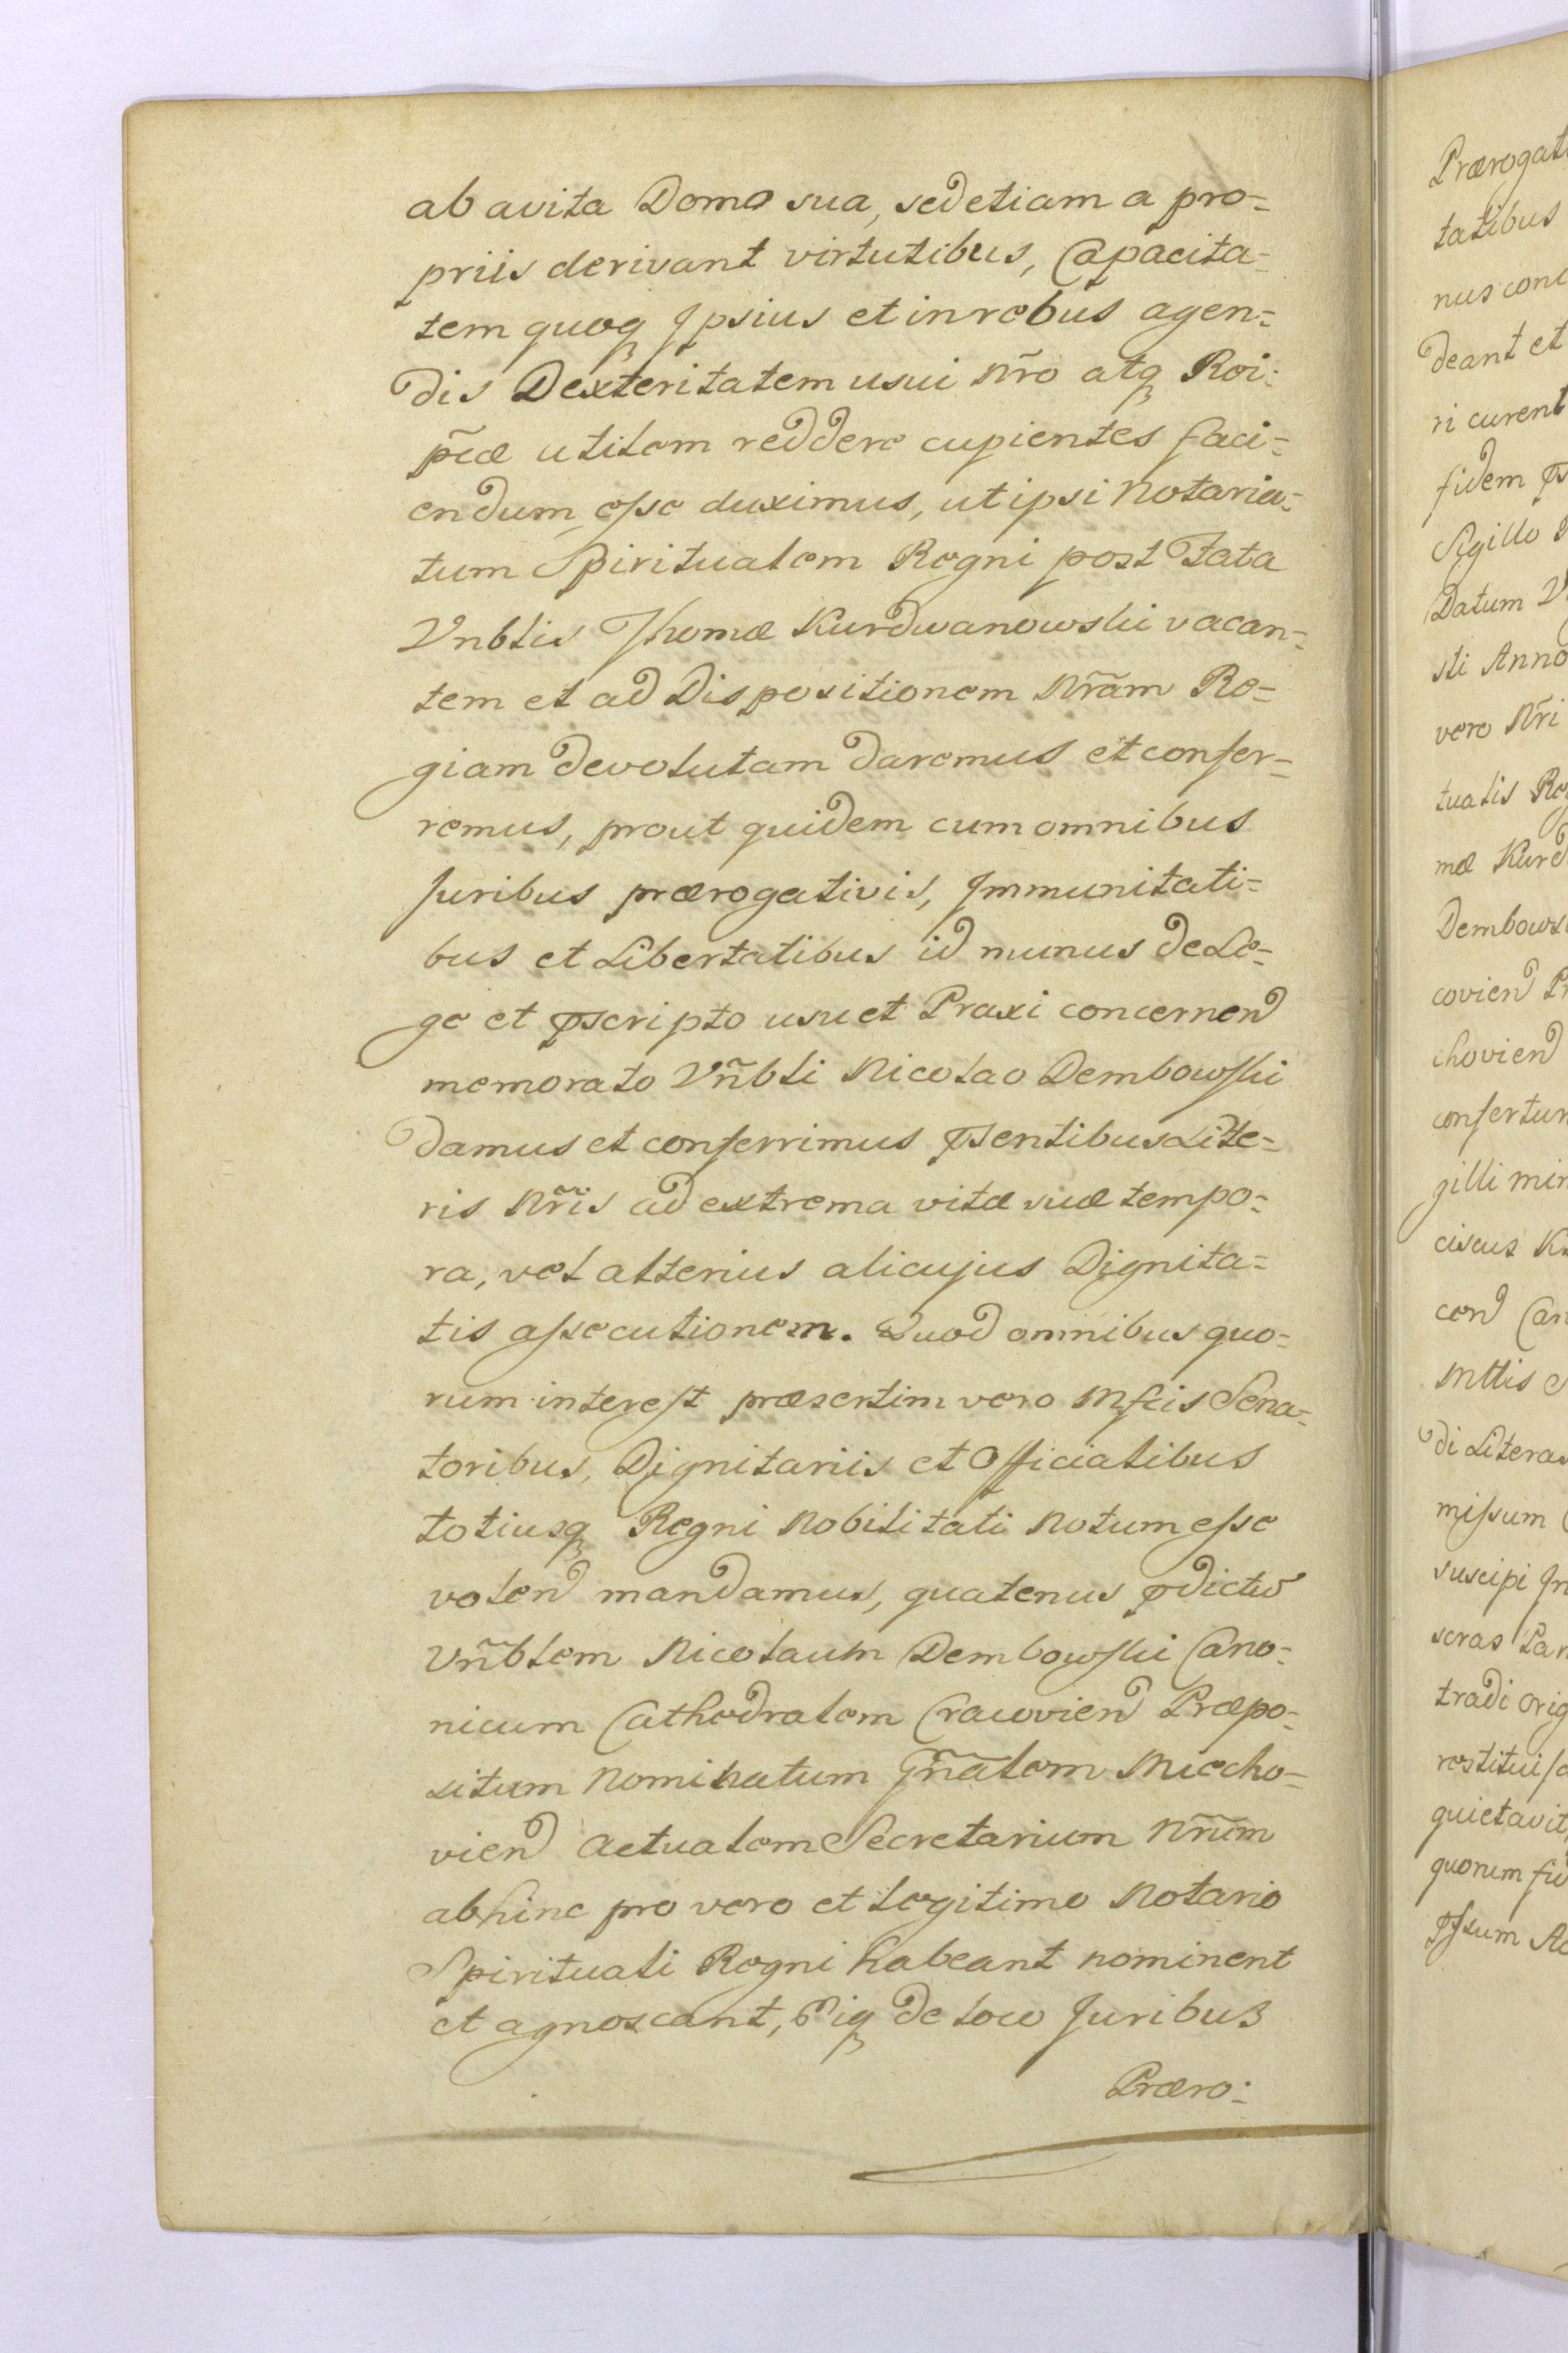 ab avita Domo sua, sed etiam a pro=
priis derivant virtutibus, Capacita=
tem quoq Ipsius et in rebus agen=
dis Dexteritatem usui Nr̃o atq Rei=
p̃cæ utilem reddere cupientes faci=
endum esse duximus, ut ipsi Notaria=
tum Spiritualem Regni post Fata
Vnblis Thomæ Kurdwanowski vacan=
tem et ad Dispositionem Nr̃am Re=
giam devolutam daremus et confer=
remus, prout quidem cum omnibus
Juribus prærogativis, Immunitati=
bus et Libertatibus id munus de Le=
ge et pscripto usu et Praxi concernend
memorato Vñbli Nicolao Dembowski
damus et conferrimus psentibus Lite=
ris Nr̃is ad extrema vitæ suæ tempo=
ra, vel alterius alicujus Dignita=
tis assecutionem. Quod omnibus quo=
rum interest præsertim vero Mfcis Sena=
toribus, Dignitariis et Officialibus
totiusq Regni Nobilitati Notum esse
volend mandamus, quatenus pdictũ
Vñblem Nicolaum Dembowski Cano=
nicum Cathedralem Cracovien Præpo=
situm Nominatum Gñalem Miecho=
vien Actualem Secretarium Nr̃um
abhinc pro vero et legitimo Notario
Spirituali Regni habeant nominent
et agnoscant, Eiq de loco Juribus
Præro=
Prærogat
tatibus
nus conc
deant et
ri curent
fidem
Sigillo
Datum
sti Anno
vero Nr̃i
tualis Re
mæ Kurd
Dembows
covien Pr
chovien
confertur
gilli min
ciscus
cen Can
Mttis
di Litera
missum
suscipi In
seras
tradi orig
restituis
quietavit
quorum fid